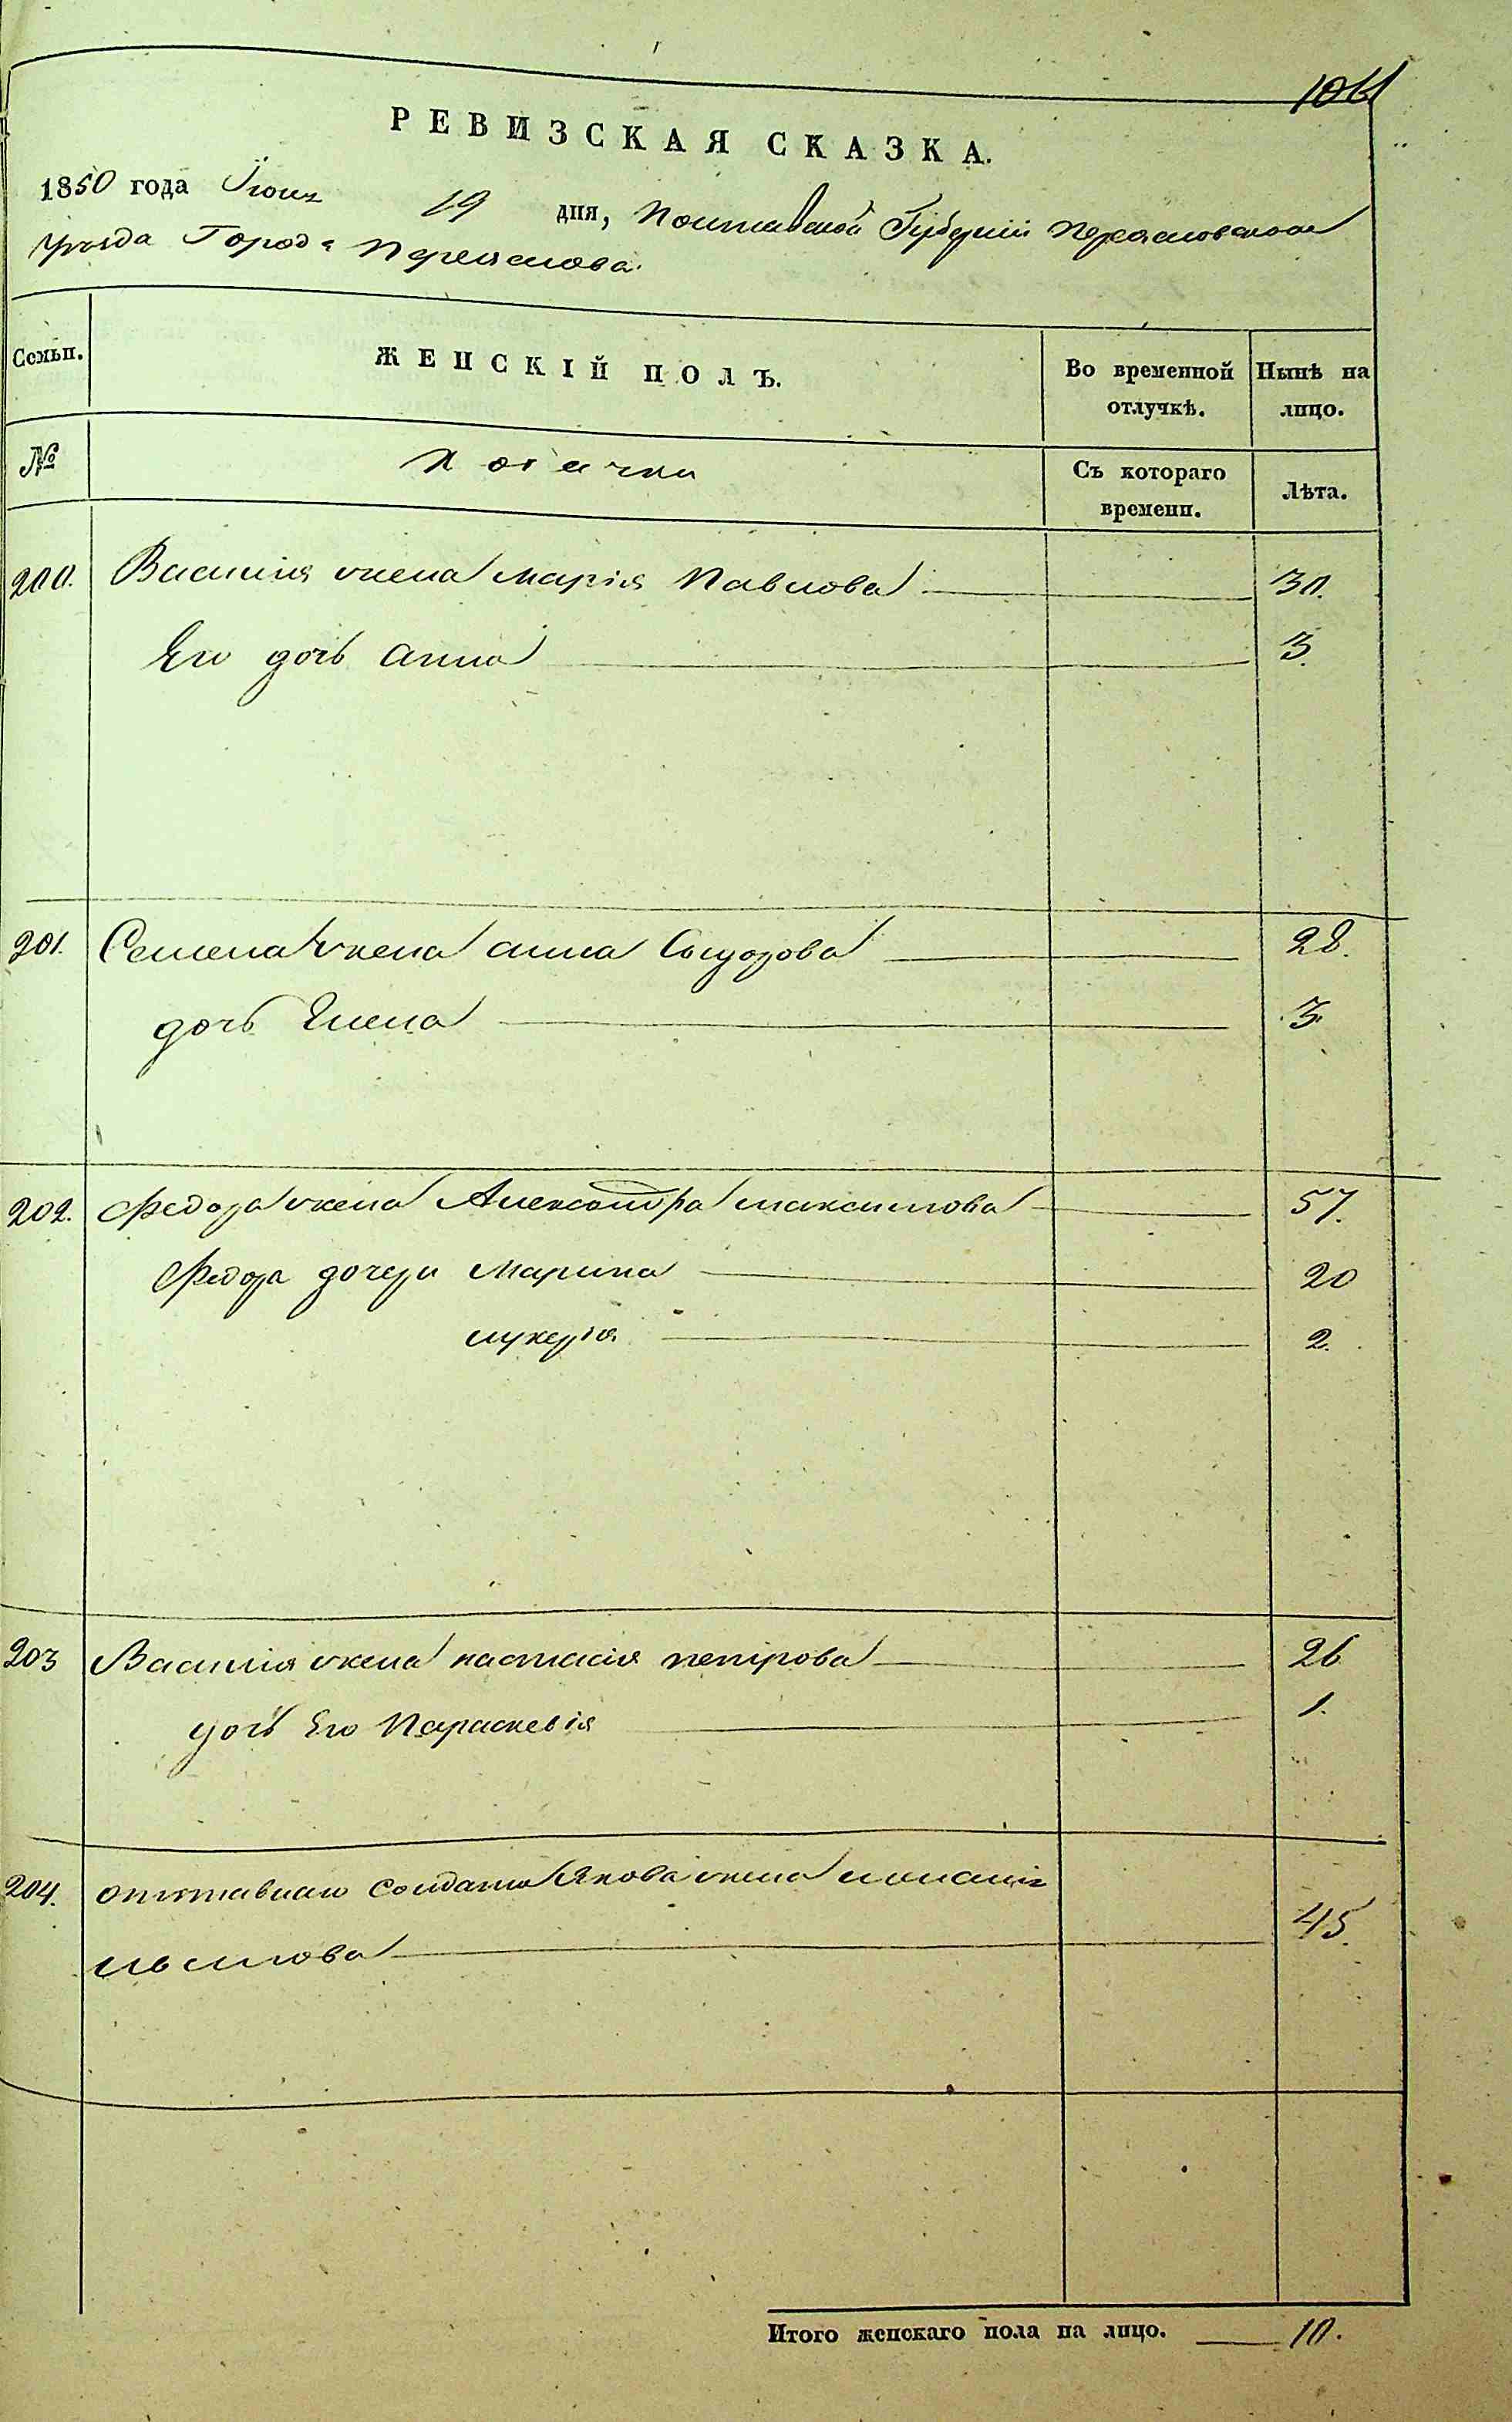 РЕВИЗСКАЯ СКАЗКА.
1850 года Іюня 19 дня, Полтавской Губерніи Переяславскаго
Уѣзда Города Переяслова.
Семьи. ЖЕНСКІЙ ПОЛЪ. Во временной отлучкѣ. Нынѣ на лицо.
№ Козачки Съ котораго времени. Лѣта.
200. Василія жена Марія Павлова 30.
Его дочь Анна 3.
201. Семена жена Анна Сыдорова 28.
дочь Елена 3.
202. Федора жена Александра Максимова 57.
Федора дочери Марина 20
Лукерія 2.
203 Василія жена Настасія Петрова 26
дочь Его Параскевія 1.
204. отставнаго Солдата Якова жена
45.
Итого женскаго пола на лицо. 10.